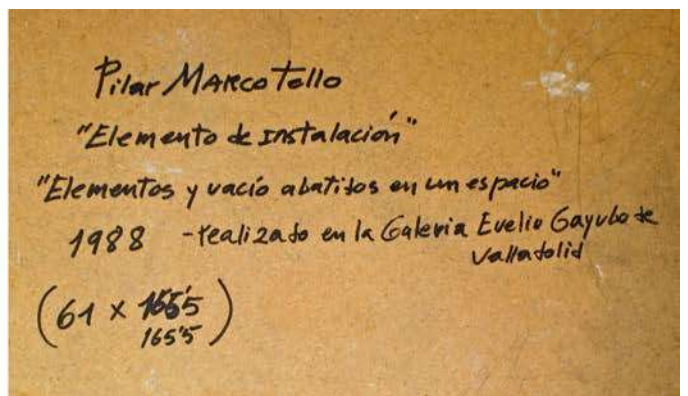 Pilar MARCO Tello
"Elemento de instalación"
"Elementos y vació abatidos en un espacio"
1988 - realizado en la Galeria Evelio Gayubo de
Valladolid
(61 x 165'5)
165'5